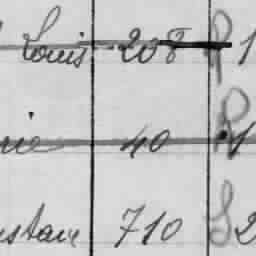 Louis 208 R 1
nie 40 R 1
stave 710 S 2